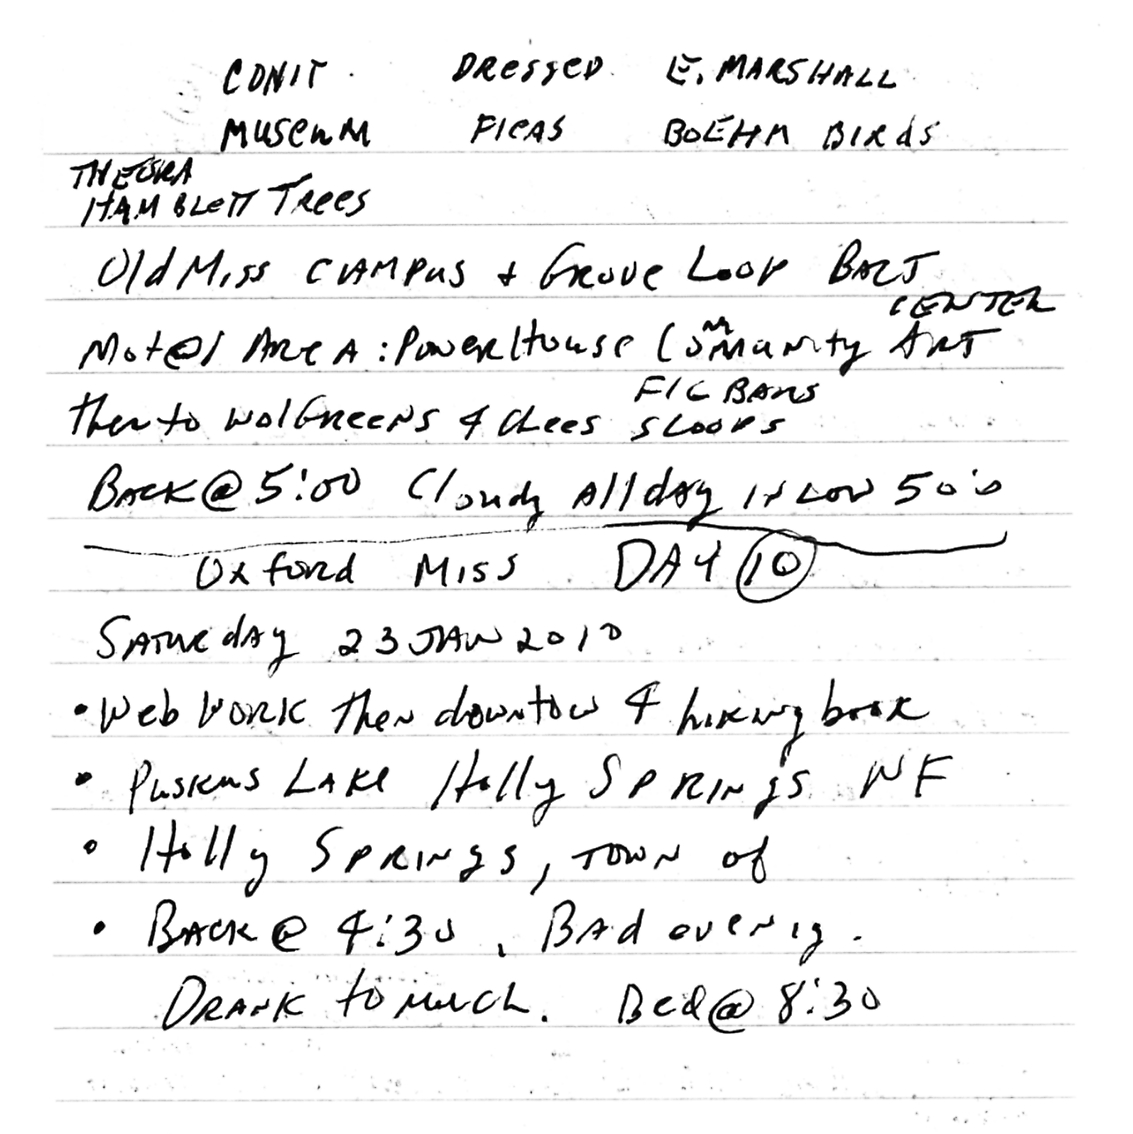 CONIT. DRessed E. MARSHALL
MUSeuM FleAS BoEHM BIRdS
THEORA
HAMBLETT Trees
Old Miss CAMPUS + Grove Loop
CENTER
Motel AreA: PowerHouse Community ART
FIG BARS
then to WolGreens & Chees
BACK @ 5:00 Cloudy All day IN Low 50's
Oxford Miss DAY 10
SATURdAy 23 JAN 2010
• Web WORK Then downtow & hiking book
• Puskus LAKE Holly SPRINgS NF
• Holly SPRINgS, TOWN of
• BACK @ 4:30. BAd evenig.
DRANK to much. Bed @ 8:30